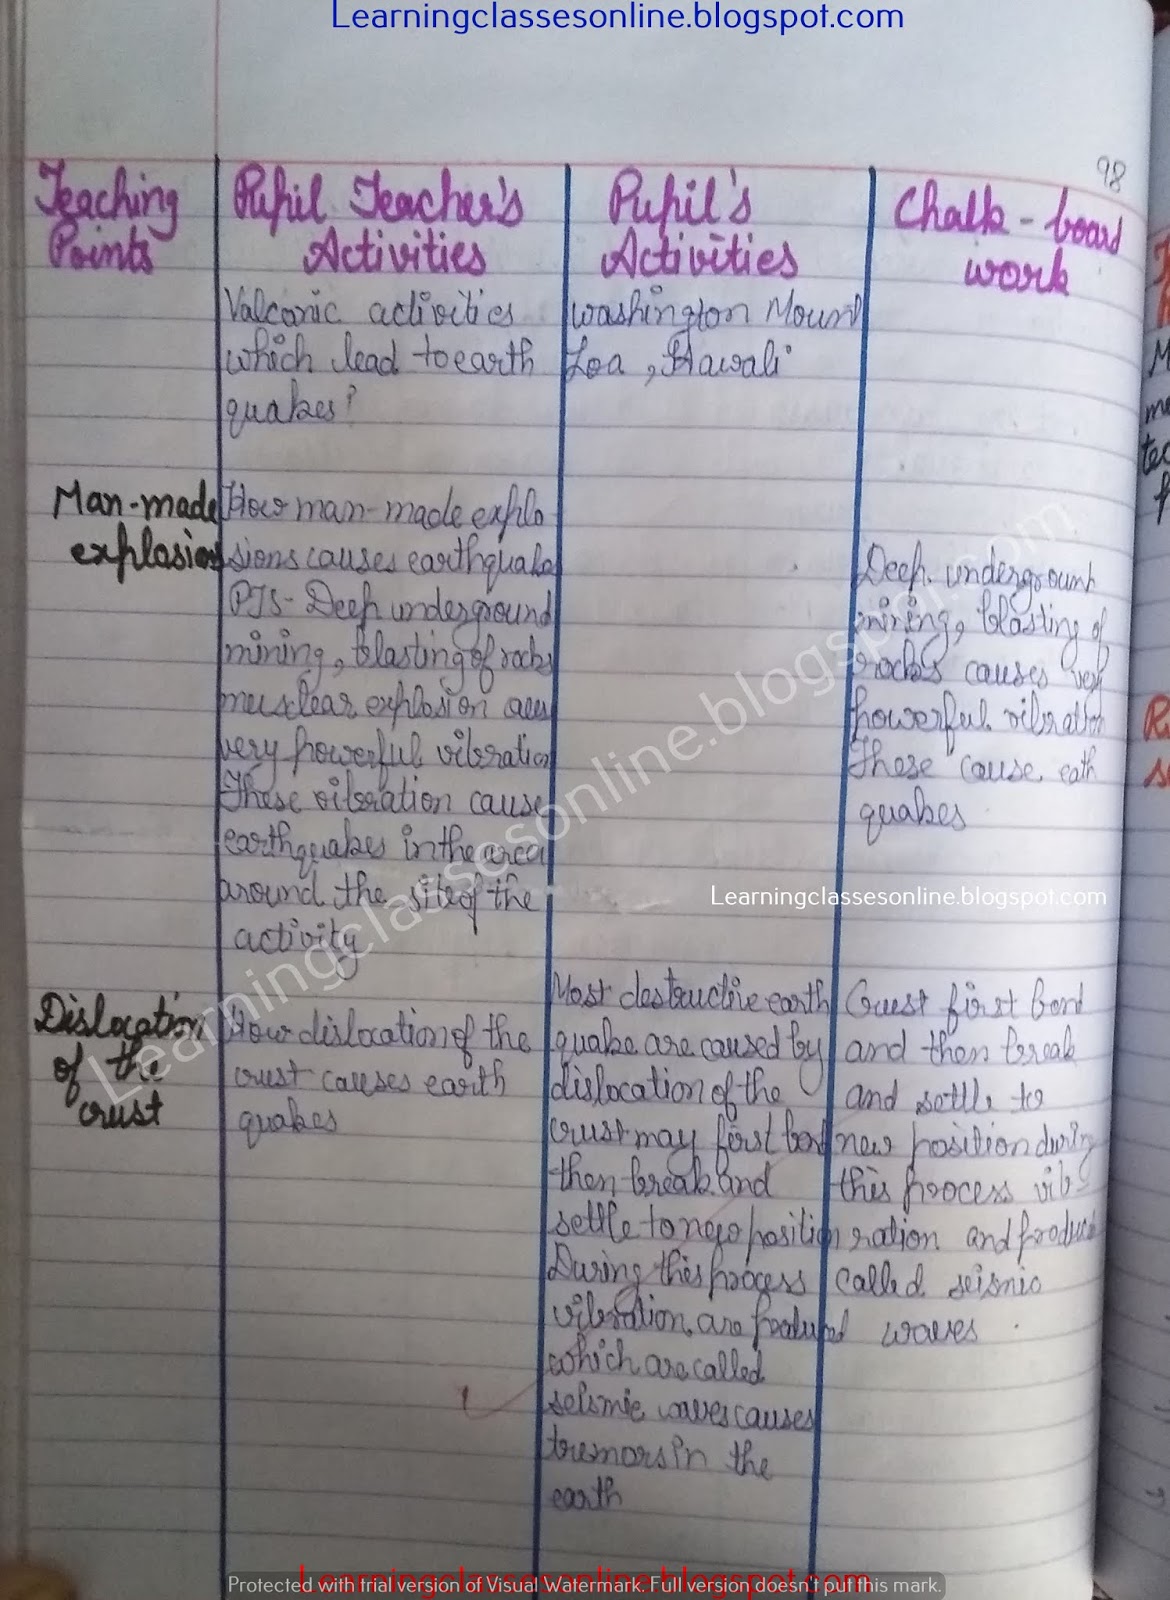 Learningclassesonline.blogspot.com
98
Teaching
Points
Pupil Teacher's
Activities
Pupil's
Activities
Chalk-board
work
Valconic activities
which lead to earth
quakes?
washington Mount
Loa, Hawali
Man-made
explosions
How man-made explo
sions causes earthquake
PTS- Deep underground
mining, blasting of rocks
explosion
very powerful vibration
These vibration cause
earthquakes in the area
around the site of the
activity
Deep underground
mining, blasting of
rocks causes very
powerful vibration
These cause eath
quakes
Learningclassesonline.blogspot.com
Dislocation
of the
crust
How dislocation of the
crust causes earth
quakes
Most destructive earth
quake are caused by
dislocation of the
crust may first bend
then break and
settle to position
During this process
vibration are produced
which are called
seismic waves causes
tremors in the
earth
first bend
and then break
and settle to
new position during
this process vib-
ration and produce
called seismic
waves
Learningclassesonline.blogspot.com
Learningclassesonline.blogspot.com
Protected with trial version of Visual Watermark. Full version doesn't put this mark.